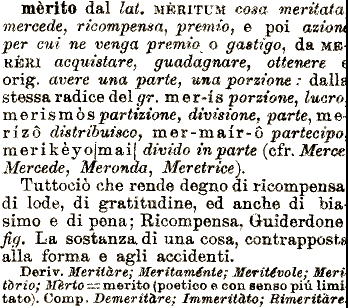 mèrito dal lat. MÈRITUM cosa meritata
mercede, ricompensa, premio, e poi azion
per cui ne venga premio o gastigo, da ME-
RÈRI acquistare, guadagnare, ottenere e
orig. avere una parte, una porzione: dalla
stessa radice del gr. mer-ís porzione, lucro
merismòs partizione, divisione, parte, me-
rizô distribuisco, mer-maír-ô partecipo
merikèyo|mai| divido in parte (cfr. Merce
Mercede, Meronda, Meretrice).
Tuttociò che rende degno di ricompensa
di lode, di gratitudine, ed anche di bia-
simo e di pena; Ricompensa, Guiderdone
fig. La sostanza di una cosa, contrapposta
alla forma e agli accidenti.
Deriv. Meritàre; Meritaménte; Meritévole; Meri-
tòrio; Mèrto=merito (poetico e con senso più limi-
tato). Comp. Demeritàre; Immeritàto; Rimeritàre